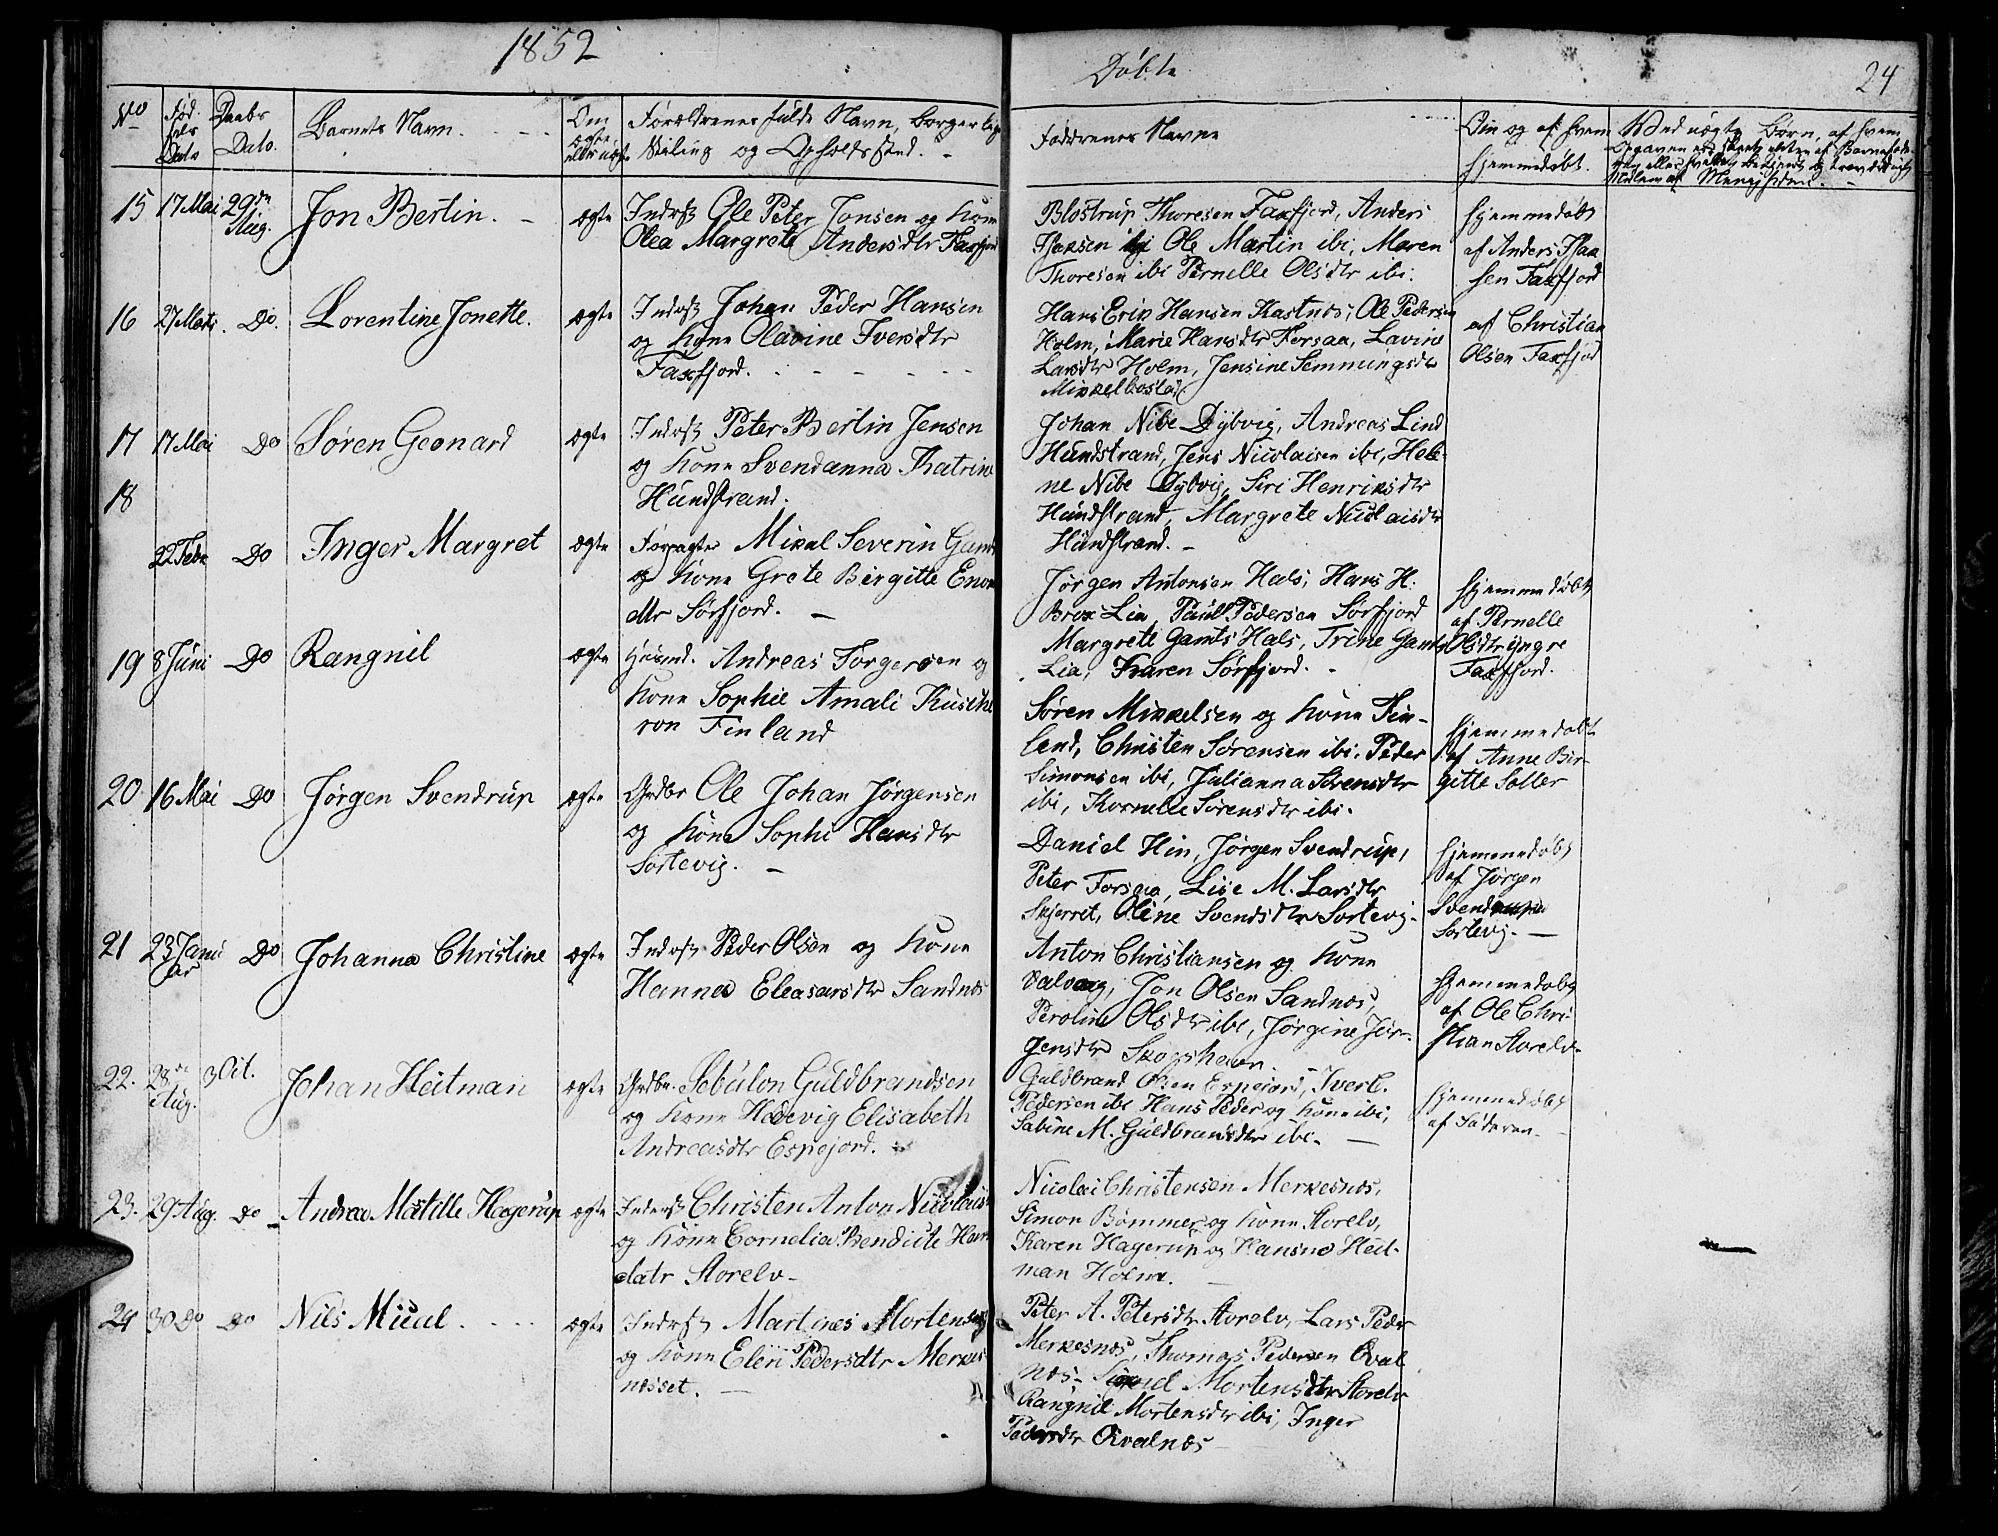 1852
Døbte
24
No
Fød-
sels
Dato
Daabs
Dato.
Barnets Navn.
Om
ægte
eller uægte
Forældrenes fulde Navn, borgerlige
Stiling og Opholdssted.
Faddrenes Navne
Om og af hvem
hjemmedøbt.
Ved uægte Børn, af hvem
15 17 Mai 29de Aug. Jon Bertin. ægte
Inderst Ole Peter Jonsen og Kone
Olea Margrete Andersdtr Faxfjord
Blostrup Thoresen Faxfjord, Anders
Isaksen ibi Ole Martin ibi, Maren
Thoresen ibi Pernelle Olsdtr ibi.
hjemmedøbt
af Anders Isak
sen Faxfjord
16 27 Marts. Do. Lorentine Jonette. ægte
Inderst Johan Peder Hansen
og Kone Olavine Iversdtr
Faxfjord.
Hans Erik Hansen Kastnes, Ole Pedersen
Holm, Marie Hansdtr Forsaa, Lavine
Larsdtr Holm, Jensine Semmingsdtr
Mikkelbostad
af Christian
Olsen Faxfjord
17 17 Mai Do Søren Geonard ægte
Inderst Peter Bertin Jensen
og Kone Svendanna Katrine
Hundstrand.
Johan Nibe Dybvig, Andreas Lind
Hundstrand, Jens Nicolaisen ibi, Hele-
ne Nibe Dybvig, Siri Henriksdtr
Hundstrand, Margrete Nicolaisdtr
Hundstrand.
18
22 Febr Do Inger Margret ægte
Forpagter Mikal Severin Gamst
og Kone Grete Birgitte Enoks
dtr Sørfjord.
Jørgen Antonsen Hals, Hans H.
Brox Lia, Paul Pedersen Sørfjord
Margrete Gamts Hals, Trine Gamts
Lia, Karen Sørfjord.
hjemmedøbt
af Pernelle
Olsdtr yngre
Faxfjord.
19 8 Juni Do Rangnil ægte
Husmd. Andreas Torgersen og
Kone Sophie Amali Kusche
ron Finland
Søren Mikkelsen og Kone Fin-
land, Christen Sørensen ibi, Peder
Simonsen ibi, Julianna Sørensdtr
ibi, Kornelie Sørensdtr ibi.
hjemmedøbt
af Anne Bir-
gitte Soller
20 16 Mai Do Jørgen Svendrup ægte
Grdbr Ole Johan Jørgensen
og Kone Sophi Hansdtr
Sortevig.
Daniel Hin, Jørgen Svendrup,
Peter Forsaa, Lise M. Larsdtr
Skjerret, Oline Svendsdtr Sortevig.
hjemmedøbt
af Jørgen
Svendrup
Sortevig.
21 23 Janu
ar Do Johanna Christine ægte
Inderst Peder Olsen og Kone
Hanna Eleasarsdtr Sandnæs
Anton Christiansen og Kone
Valvaag, Jon Olsen Sandnæs,
Peroline Olsdtr ibi, Jørgine Jør-
gensdtr Skogshavn.
hjemmedøbt
af Ole Chri-
stian Storelv.
22. 28de Aug. 3 Oct. Johan Heitman ægte
Grdbr. Sebulon Guldbrandsen
og Kone Hedevig Elisabeth
Andreasdtr Espejord.
Guldbrand Olsen Espejord, Iver C.
Pedersen ibi Hans Peder og Kone ibi,
Sabine M. Guldbransdtr ibi.
hjemmedøbt
af Faderen.
23. 29 Aug. Do Andrea Matille Hagerup ægte
Inderst Christen Anton Nicolais
og Kone Cornelia Bendicte Han
datr Storelv.
Nicolai Christensen Merkesnæs,
Simon Bømmer og Kone Storelv,
Karen Hagerup og Hansine Heit-
man Holm.
24 30 Do Do Nils Mical. ægte
Inderst Martines Mortensen
og Kone Elen Pedersdtr Merkes-
næsset.
Peter A. Petersdtr Storelv, Lars Peder
Merkesnæs, Thomas Pedersen Qval
næs. Sigrid Mortensdtr Storelv
Rangnil Mortensdtr ibi, Inger
Pedersdtr Qvalnæs